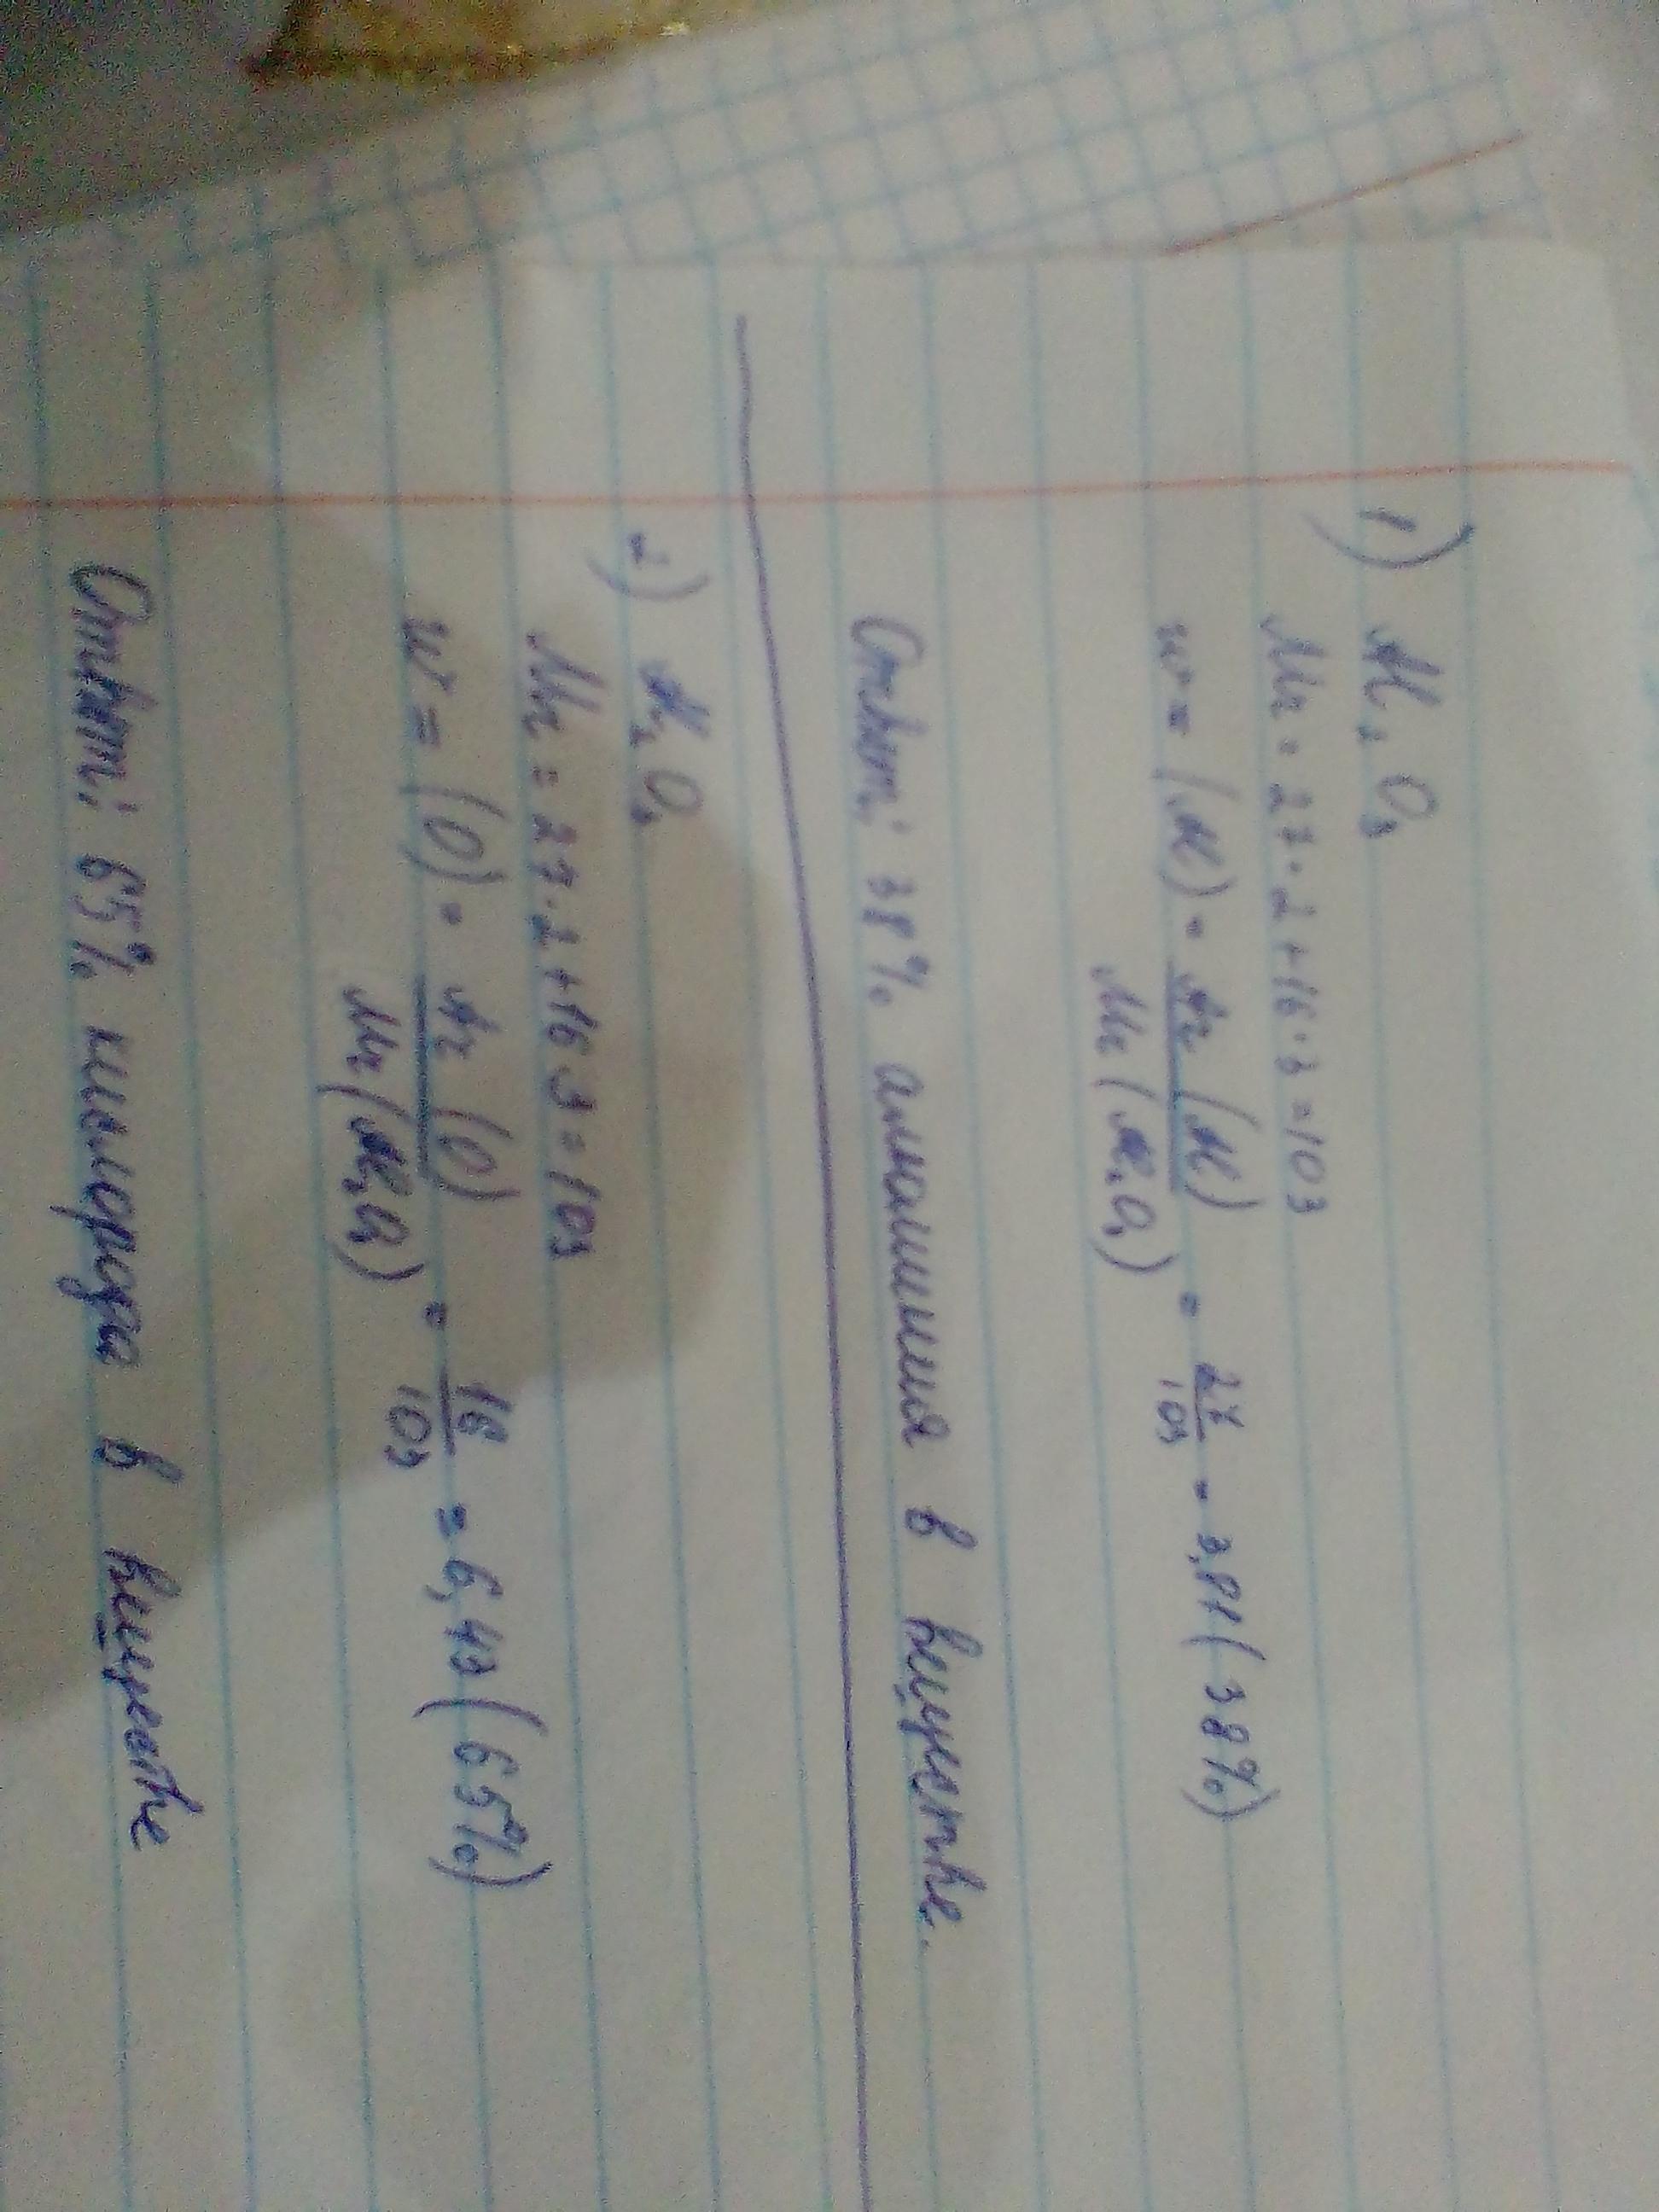 1) Al₂O₃
Mr = 27·2+16·3=103
w = (Al) = Ar (Al) / Mr (Al₂O₃) = 27/103 = 3,81 (38%)
Ответ: 38% алюминия в веществе.
2) Al₂O₃
Mr = 27·2+16·3=103
w = (O) = Ar (O) / Mr (Al₂O₃) = 16/103 = 6,43 (65%)
Ответ: 65% кислорода в веществе